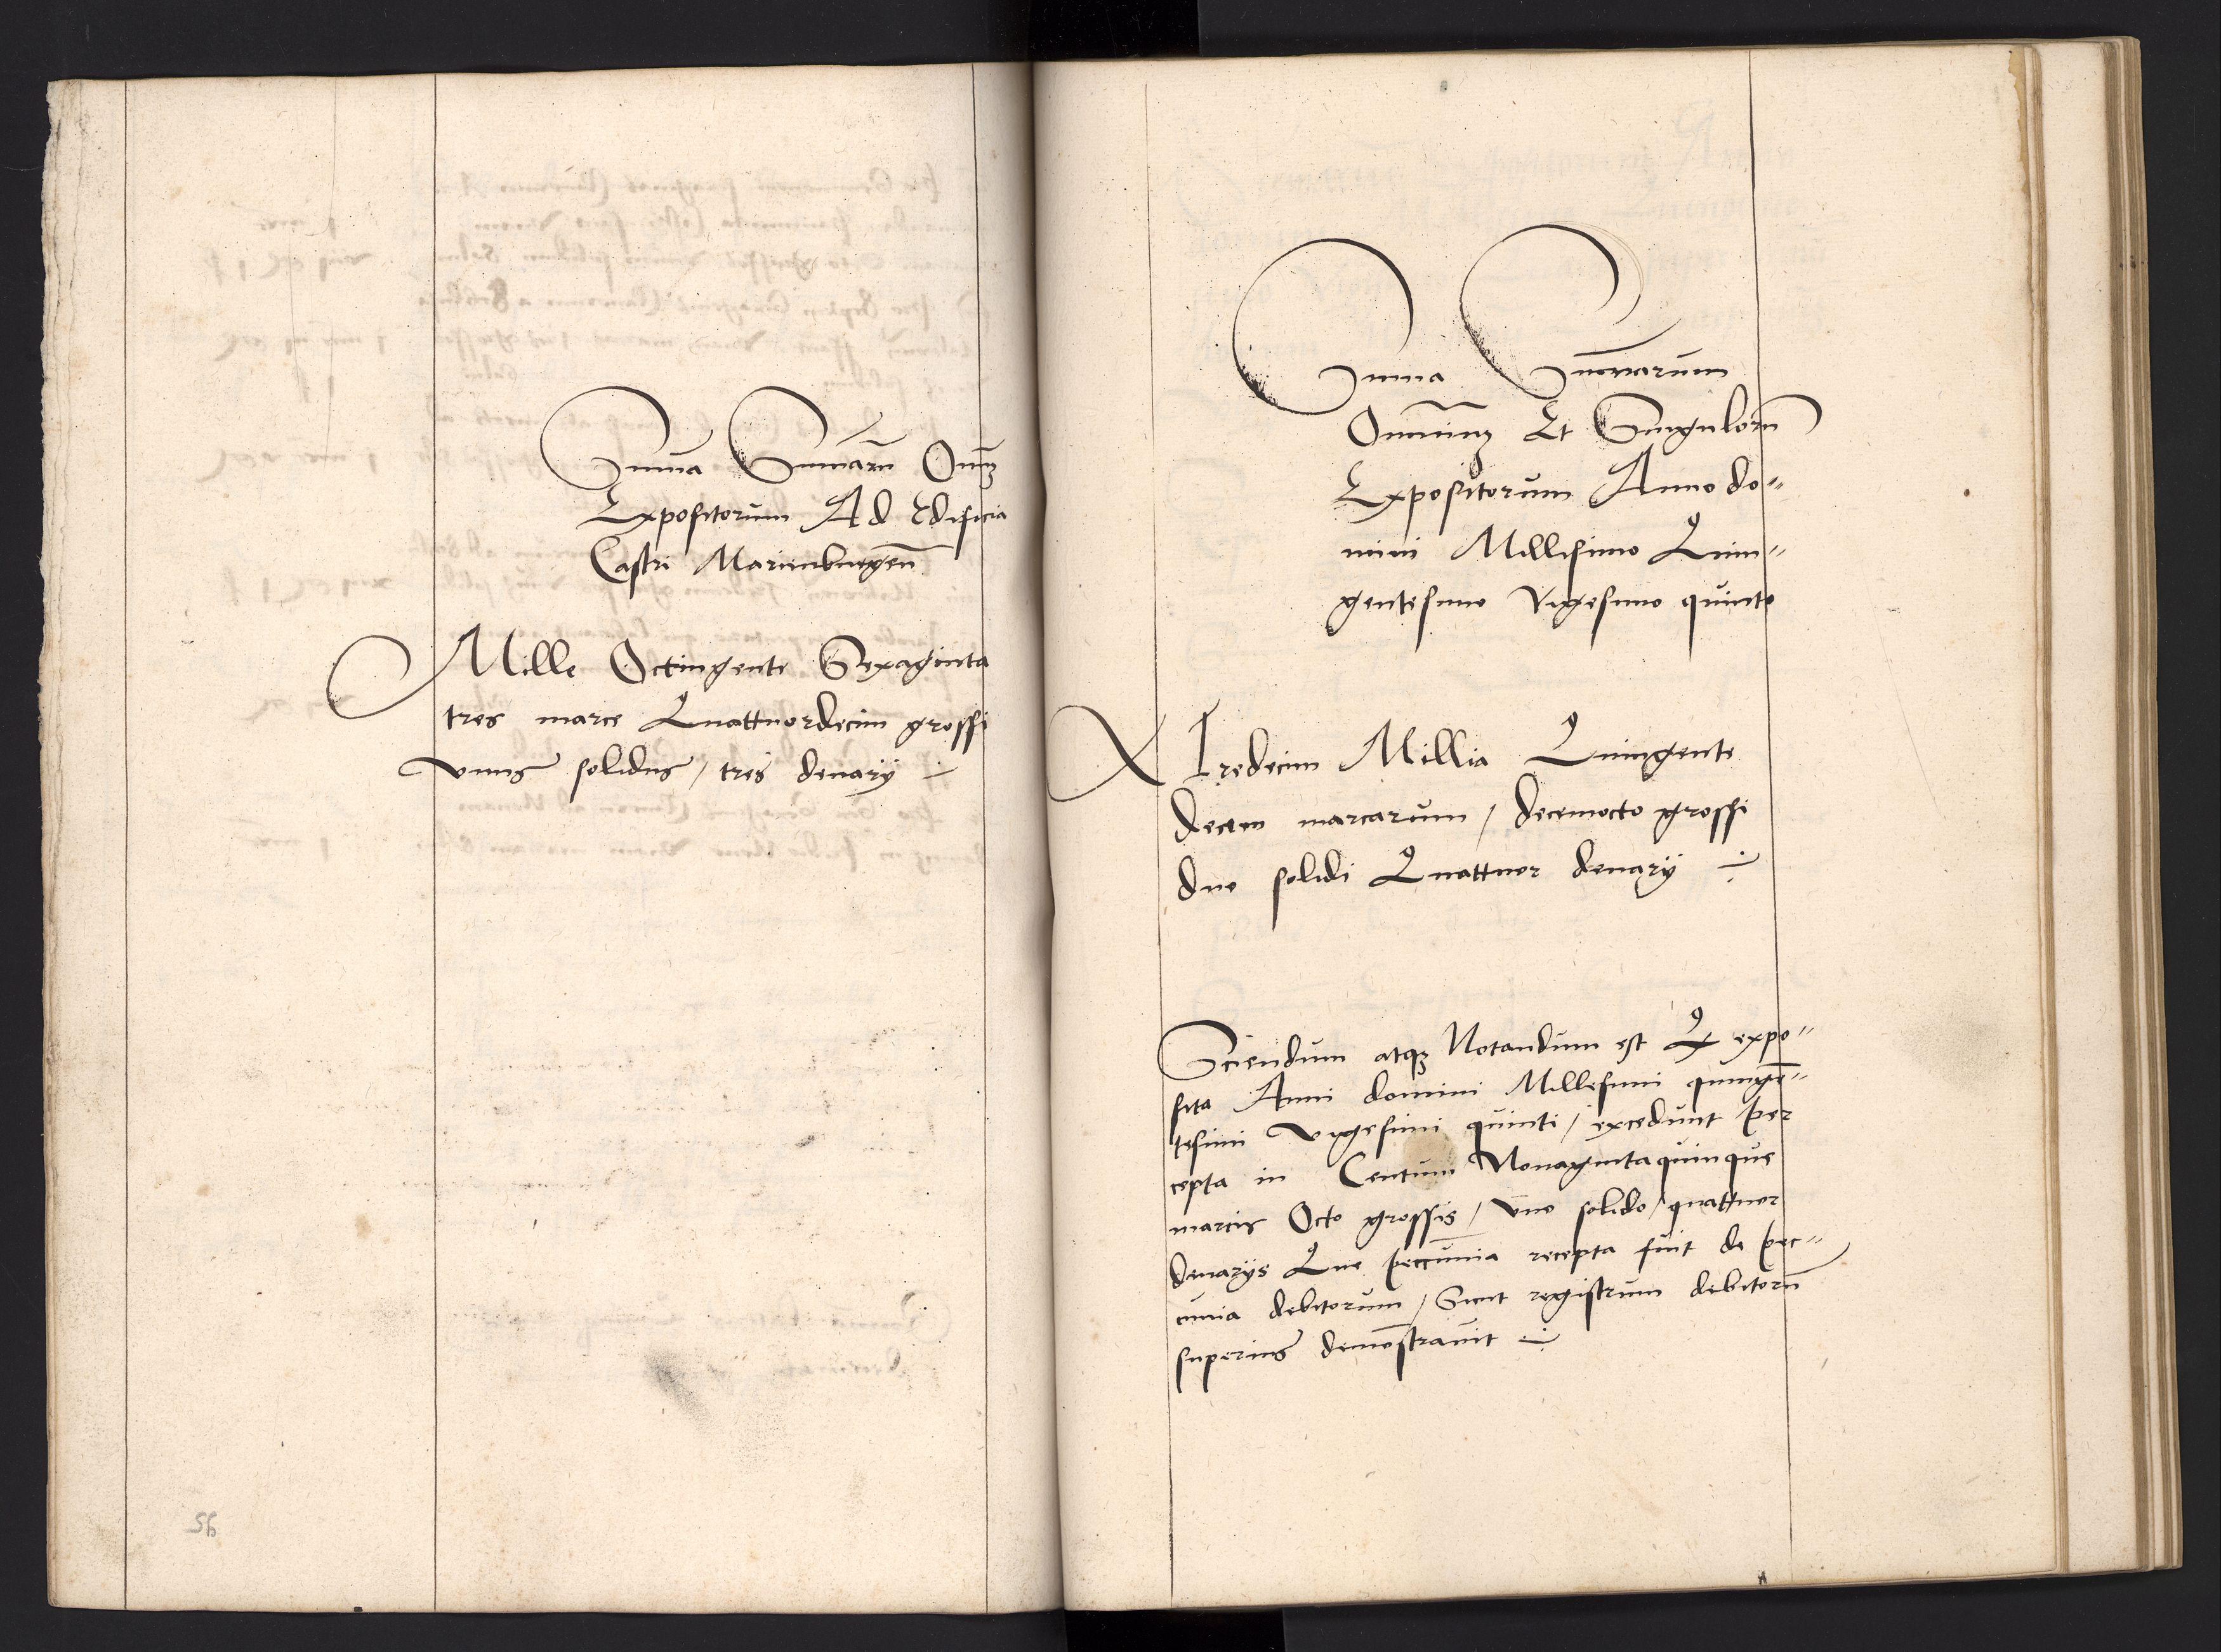 Summa Summarū Omīꝫ
Expositorum Ad Edificia
Castri Marienburgen̄
Mille Octingente Sexaginta
tres marce Quattuordecim grossi
vnus solidus / tres denarÿ
Suma Summarum
Omniūꝫ Et Singulorū
Expositorum Anno do=
mini Millesimo Quin=
gentesimo Vigesimo quinto
Tredecim Millia Quingente
decem marcarum / decemocto grossi
duo solidi Quattuor denarÿ
Sciendum atqꝫ Notandum est Qꝫ expo=
sita Anni domini Millesimi quingē=
tesimi vigesimi quinti / excedunt per
cepta in Centum Nonagintaquinque
marcis Octo grossis / vno solido / quattuor
denarÿs Que peccunia recepta fuit de pec=
cunia debitorum / Sicut registrum debitorū
superius demonstrauit
95